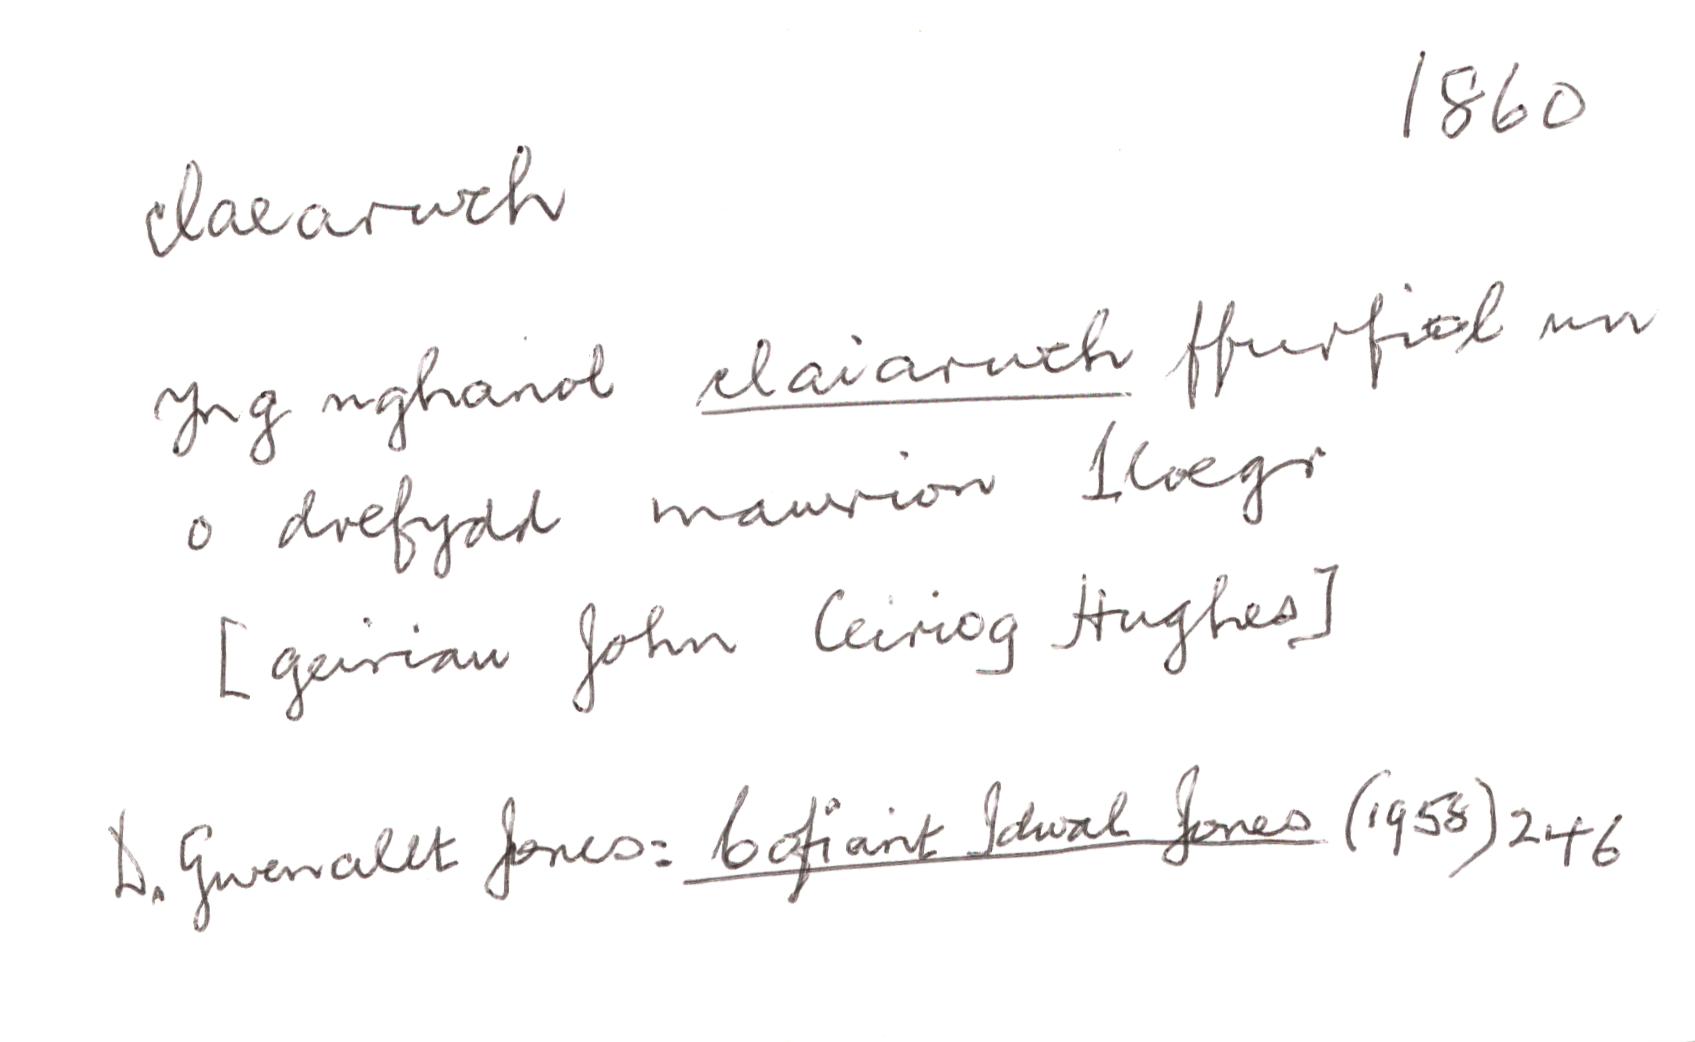 1860
claearwch
Yng nghanol claiarwch ffurfiol un
o drefydd mawrion Lloegr
[geiriau John Ceiriog Hughes]
D. Gwenallt Jones: Cofiant Idwal Jones (1958) 246